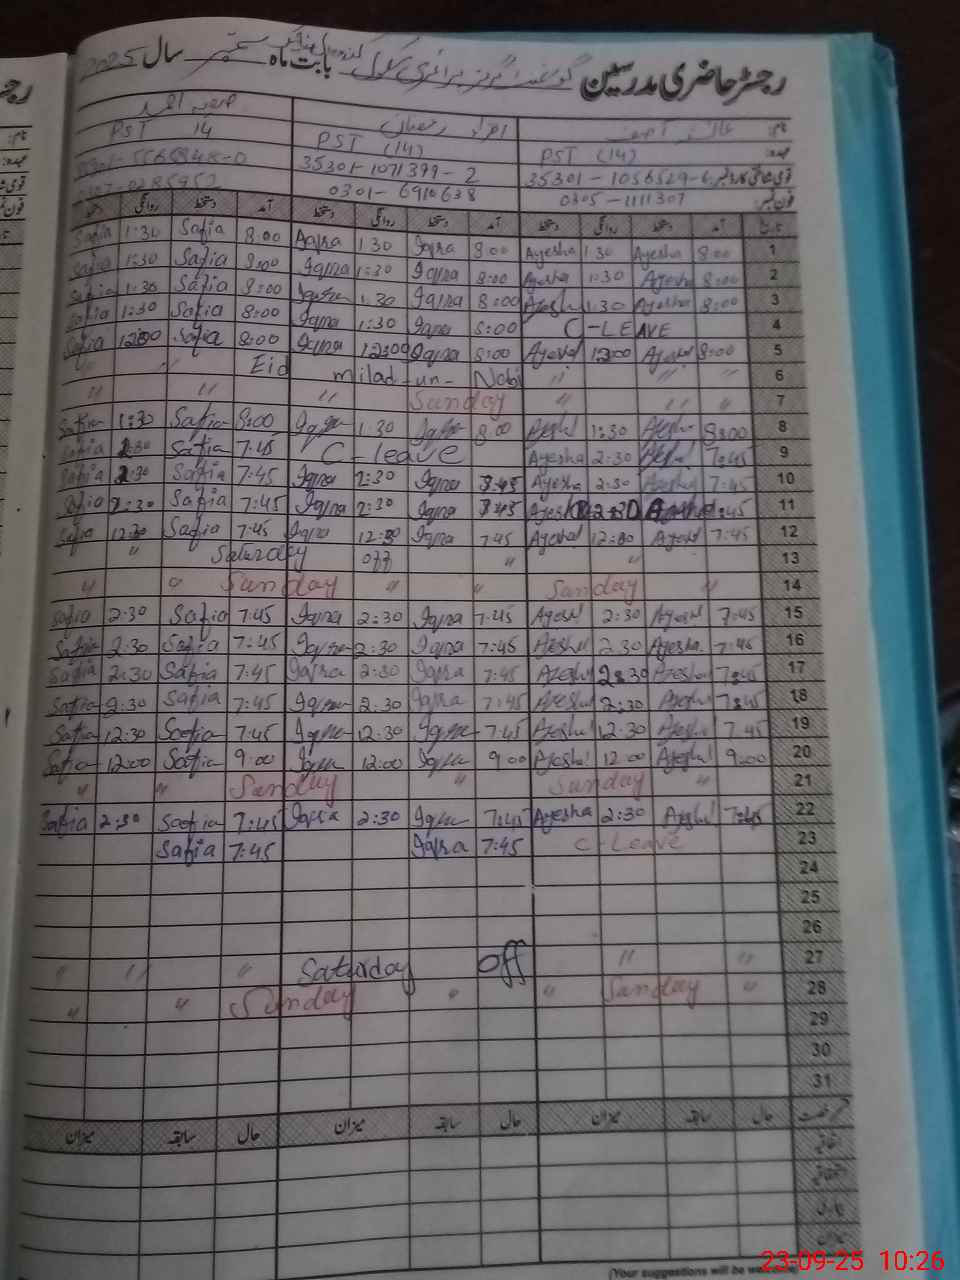 رجسٹر حاضری مدرسین گورنمنٹ گرلز پرائمری سکول بابت ماہ ستمبر سال 2025
نام: عائشہ آصف اقراء رمضان صفیہ احمد
عہدہ: PST (14) PST (14) PST 14
35301-1056529-6 35301-1071399-2
فون نمبر: 0305-1111307 0301-6910638
تاریخ آمد دستخط روانگی دستخط آمد دستخط روانگی دستخط آمد دستخط روانگی دستخط
Safia 1:30 Safia 8:00 Iqra 1:30 Iqra 8:00 Ayesha 1:30 Ayesha 8:00 1
Safia 1:30 Safia 8:00 Iqra 1:30 Iqra 8:00 Ayesha 1:30 Ayesha 8:00 2
Safia 1:30 Safia 8:00 Iqra 1:30 Iqra 8:00 Ayesha 1:30 Ayesha 8:00 3
Safia 1:30 Safia 8:00 Iqra 1:30 Iqra 8:00 C-LEAVE 4
Safia 12:00 Safia 8:00 Iqra 12:00 Iqra 8:00 Ayesha 12:00 Ayesha 8:00 5
" Eid milad-un-Nabi " " " 6
" " " " Sunday " " " 7
Safia 1:30 Safia 8:00 Iqra 1:30 Iqra 8:00 Ayesha 1:30 Ayesha 8:00 8
Safia 2:30 Safia 7:45 C-leave Ayesha 2:30 Ayesha 7:45 9
Safia 2:30 Safia 7:45 Iqra 2:30 Iqra 7:45 Ayesha 2:30 Ayesha 7:45 10
Safia 2:30 Safia 7:45 Iqra 2:30 Iqra 7:45 Ayesha 2:30 Ayesha 7:45 11
Safia 12:30 Safia 7:45 Iqra 12:30 Iqra 7:45 Ayesha 12:30 Ayesha 7:45 12
" Saturday off " " 13
" " Sunday " " Sunday " 14
Safia 2:30 Safia 7:45 Iqra 2:30 Iqra 7:45 Ayesha 2:30 Ayesha 7:45 15
Safia 2:30 Safia 7:45 Iqra 2:30 Iqra 7:45 Ayesha 2:30 Ayesha 7:45 16
Safia 2:30 Safia 7:45 Iqra 2:30 Iqra 7:45 Ayesha 2:30 Ayesha 7:45 17
Safia 2:30 Safia 7:45 Iqra 2:30 Iqra 7:45 Ayesha 2:30 Ayesha 7:45 18
Safia 12:30 Safia 7:45 Iqra 12:30 Iqra 7:45 Ayesha 12:30 Ayesha 7:45 19
Safia 12:00 Safia 9:00 Iqra 12:00 Iqra 9:00 Ayesha 12:00 Ayesha 9:00 20
" " Sunday " Sunday " 21
Safia 2:30 Safia 7:45 Iqra 2:30 Iqra 7:45 Ayesha 2:30 Ayesha 7:45 22
Safia 7:45 Iqra 7:45 C-Leave 23
24
25
26
" " " Saturday off " " 27
" " Sunday " " Sunday " 28
29
30
31
حال سابقہ میزان حال سابقہ میزان حال سابقہ میزان
اتفاقیہ
(Your suggestions will be welcome)
23-09-25 10:26